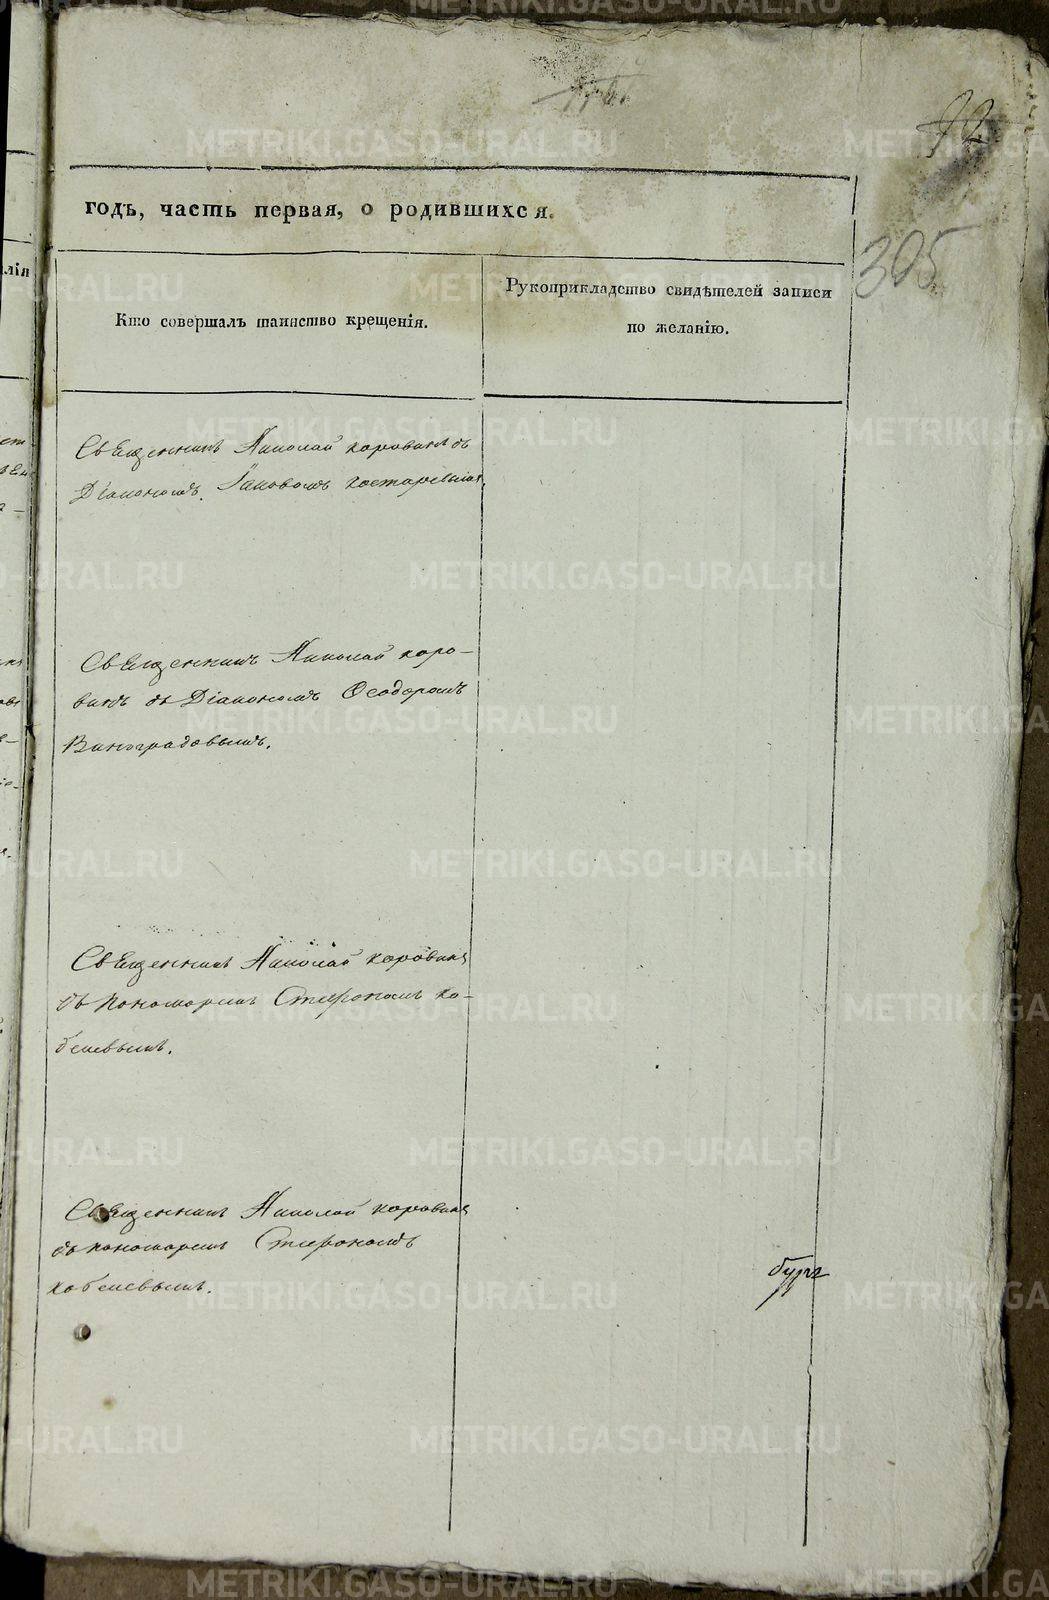 92
305
годъ, часть первая, о родившихся.
Кто совершалъ таинство крещенія.
Рукоприкладство свидѣтелей записи
по желанію.
Священникъ Николай коровинъ съ
Діакономъ Іаковомъ костаревымъ
Священникъ Николай коро-
винъ съ Діакономъ Ѳеодоромъ
Виноградовымъ.
Священникъ Николай коровинъ
съ пономаремъ Стефаномъ ко-
белевымъ.
Священникъ Николай коровинъ
съ пономаремъ Стефаномъ
кобелевымъ.
METRIKI.GASO-URAL.RU